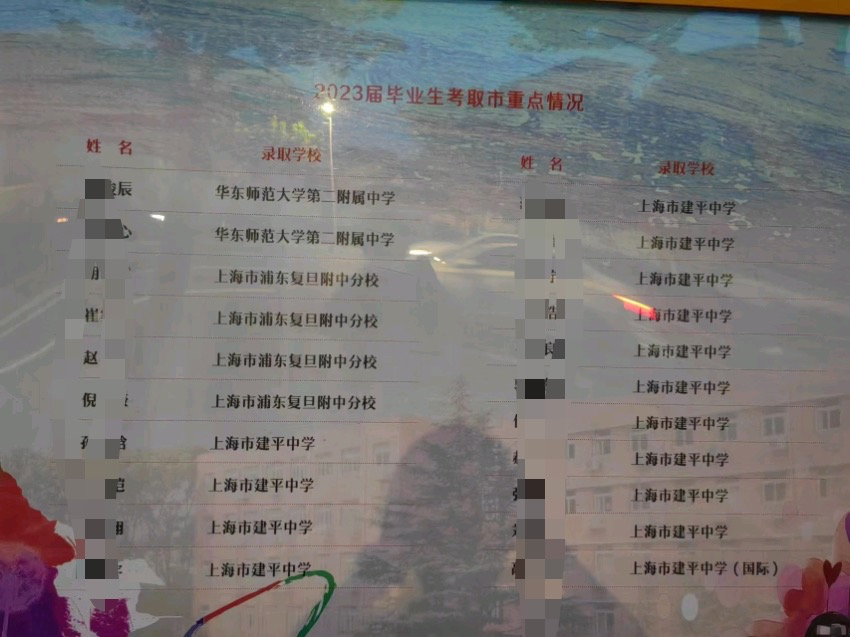 2023届毕业生考取市重点情况
姓 名 录取学校
辰 华东师范大学第二附属中学
心 华东师范大学第二附属中学
上海市浦东复旦附中分校
崔 上海市浦东复旦附中分校
赵 上海市浦东复旦附中分校
倪 上海市浦东复旦附中分校
上海市建平中学
上海市建平中学
上海市建平中学
上海市建平中学
姓 名 录取学校
上海市建平中学
上海市建平中学
上海市建平中学
浩 上海市建平中学
上海市建平中学
上海市建平中学
上海市建平中学
上海市建平中学
上海市建平中学
上海市建平中学
上海市建平中学（国际）